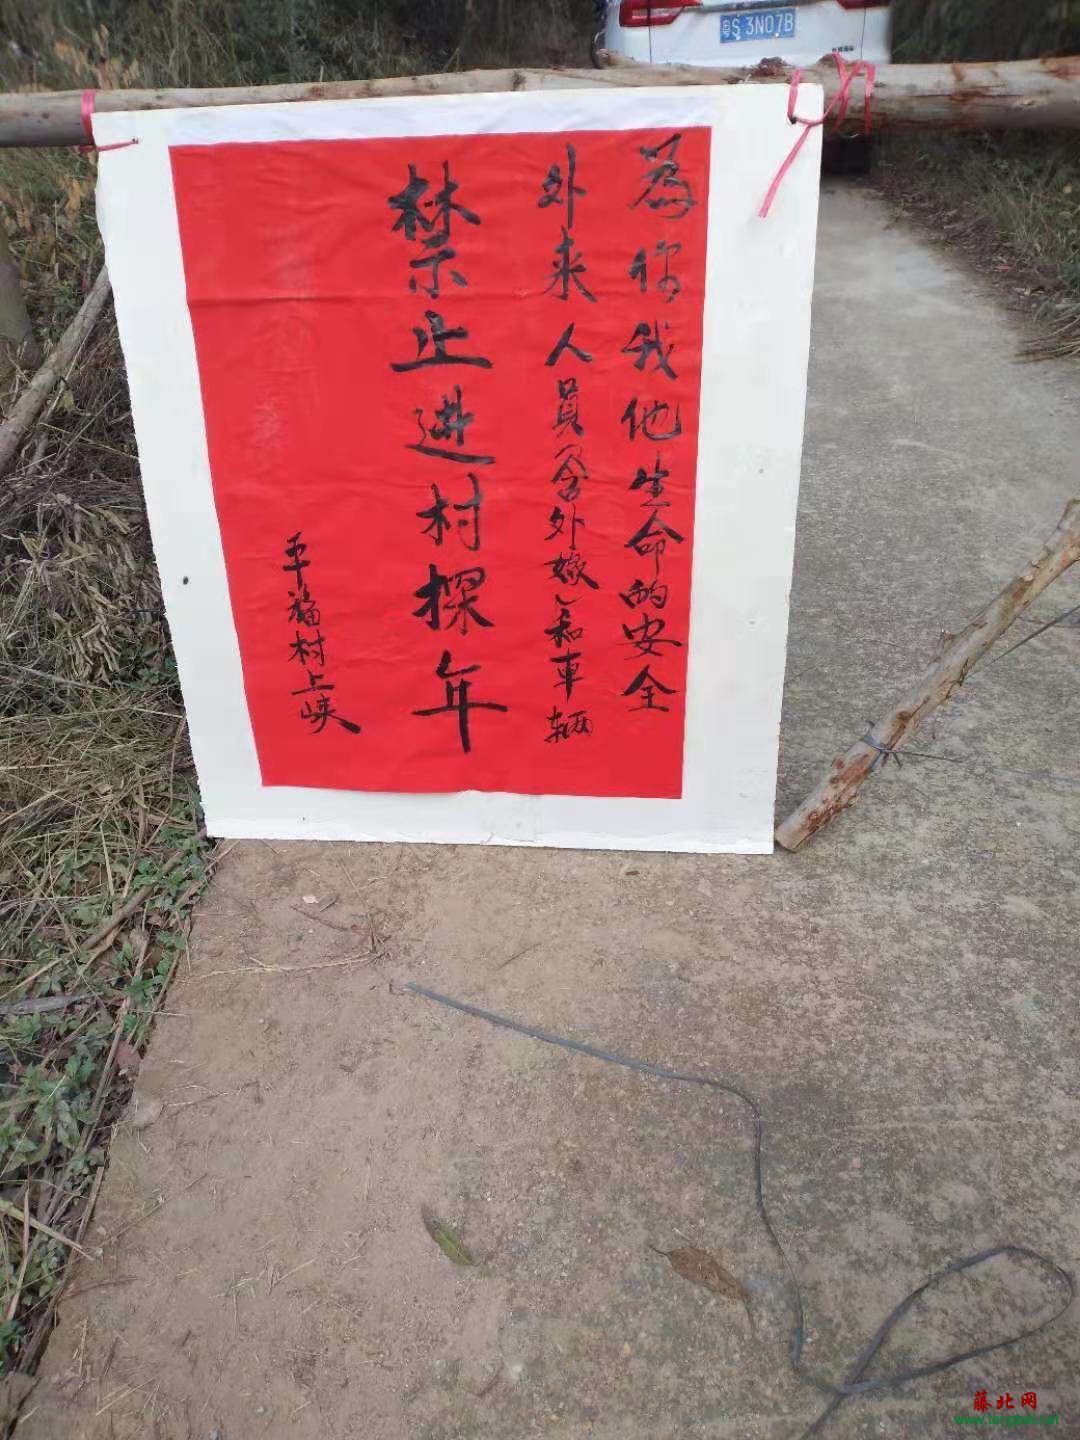 為你我他生命的安全
外来人員(含外嫁)和車辆
禁止进村探年
平福村上峡
粤S 3N07B
藤北网
www.tengbei.net